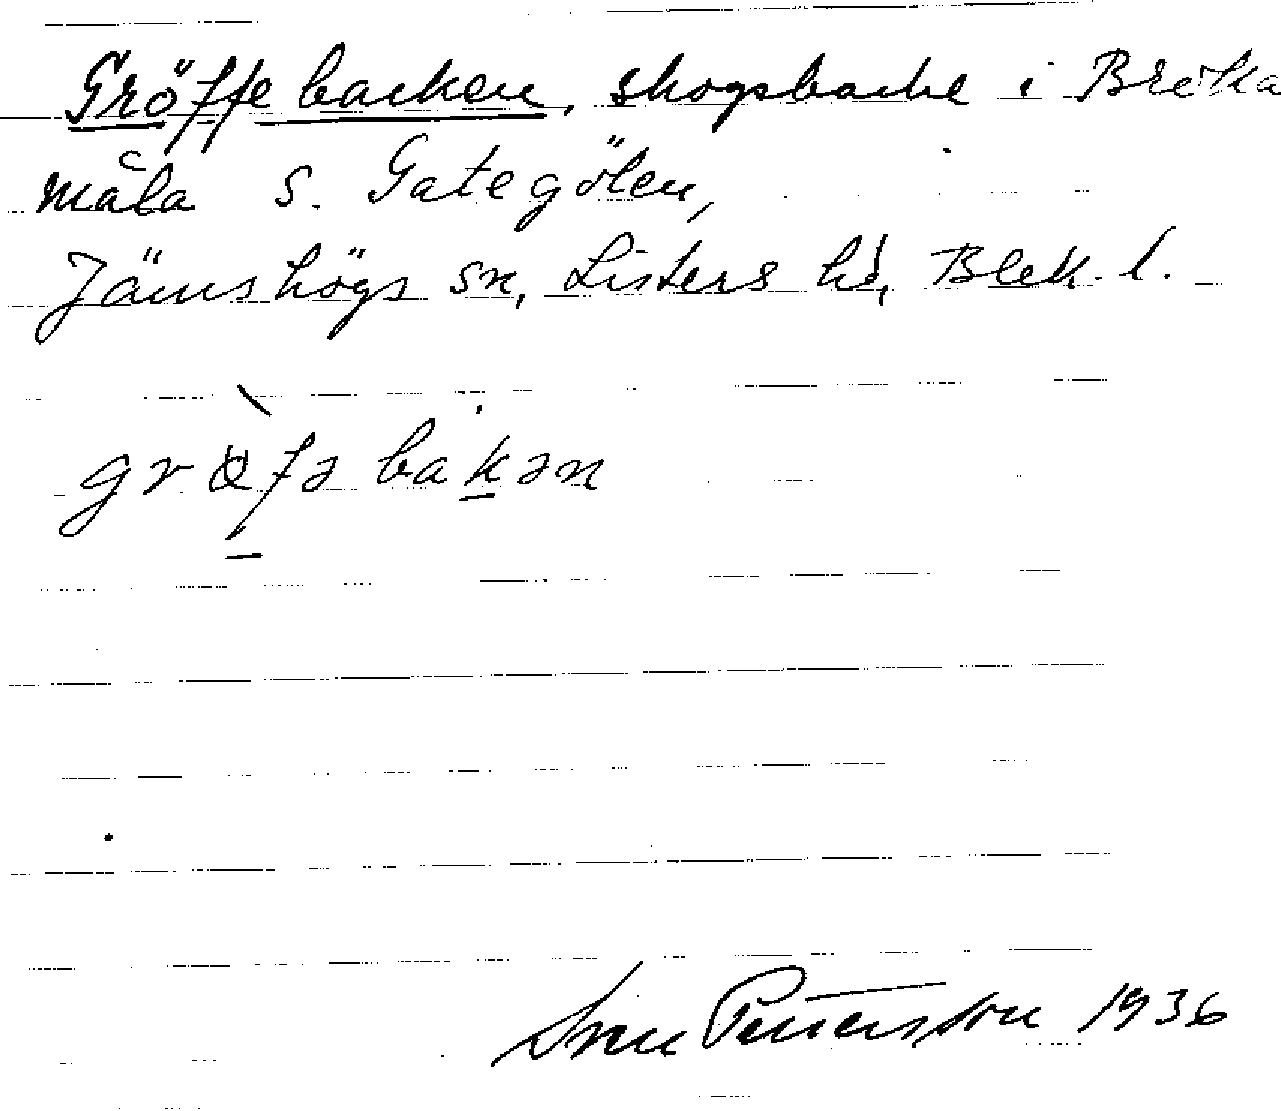 Gröffebacken, skogsbacke i Bröka
måla S. Gategölen,
Jämshögs sn, Listers hd, Blek. l.
grøfə bakən
Sven Pettersson 1936